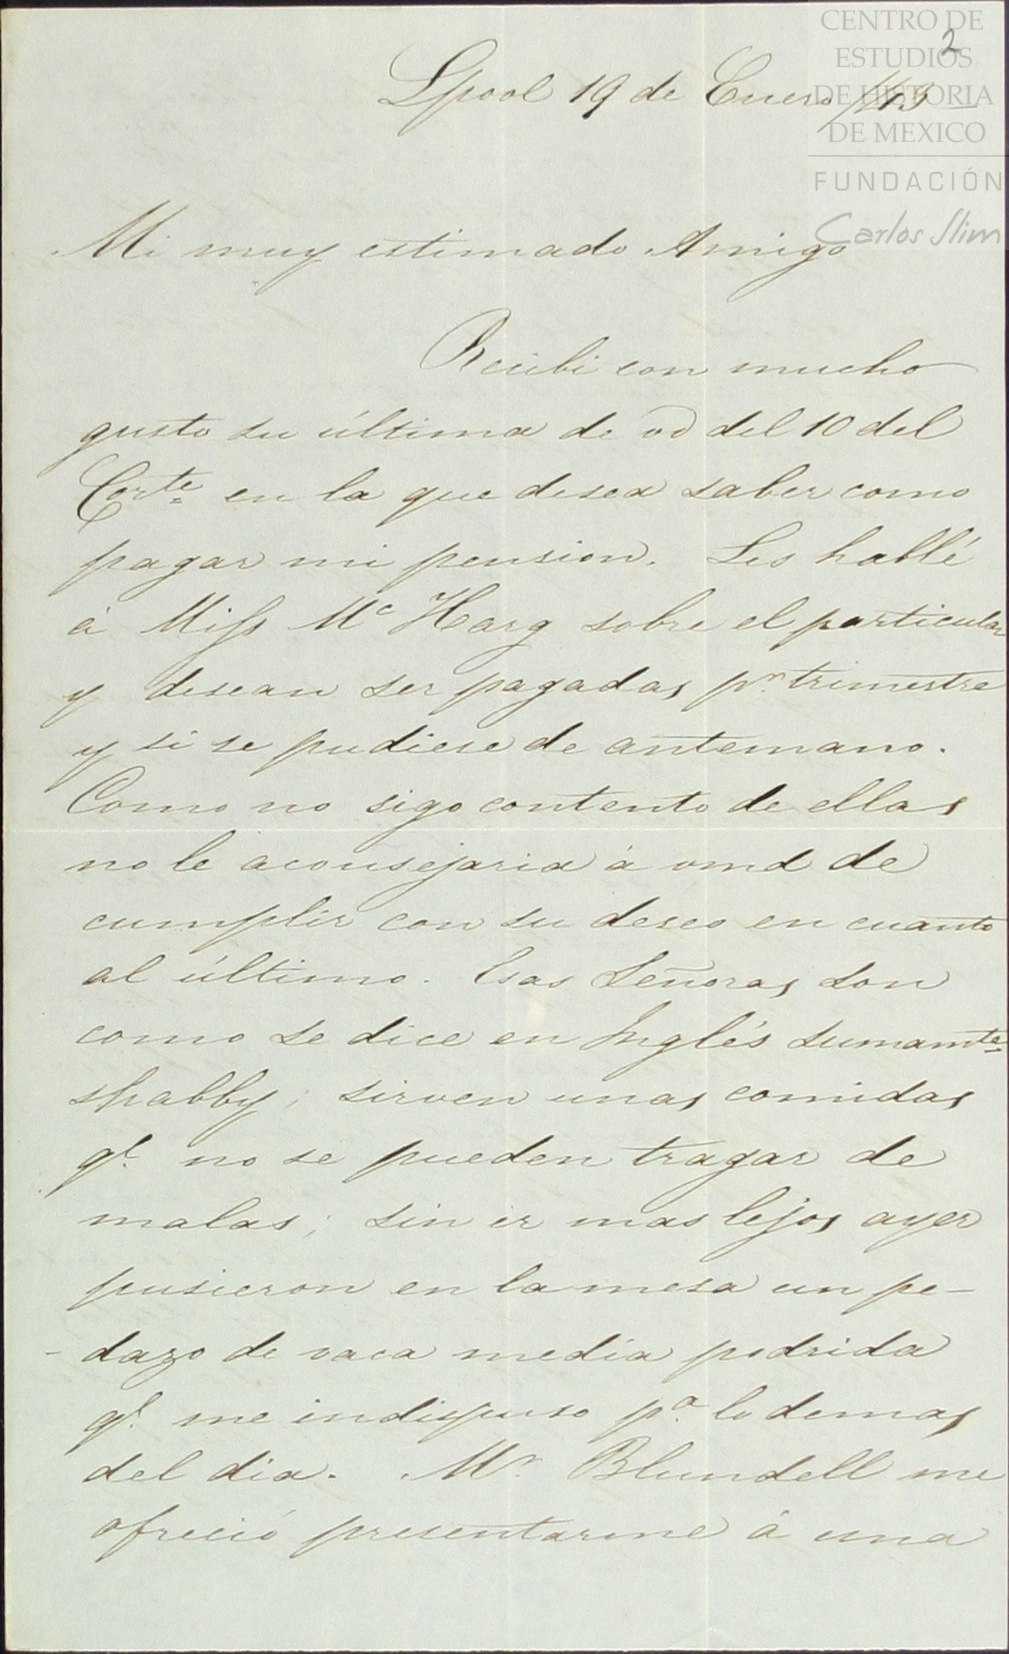 CENTRO DE
ESTUDIOS
DE HISTORIA
DE MEXICO
FUNDACIÓN
Carlos Slim
2
Lpool 19 de Enero /43
Mi muy estimado Amigo
Recibi con mucho
gusto su última de vd del 10 del
Corte en la que desea saber como
pagar mi pension. Les hablé
á Miss Mc Harg sobre el particular
y desean ser pagadas pr. trimestre
y si se pudiese de antemano.
Como no sigo contento de ellas
no le aconsejaria á vmd de
cumplir con su deseo en cuanto
al último. Esas Señoras son
como se dice en Inglés sumamte
shabby; sirven unas comidas
qe. no se pueden tragar de
malas; sin ir mas lejos ayer
pusieron en la mesa un pe-
-dazo de vaca media podrida
qe. me indispuso pa. lo demas
del dia. Mr. Blundell me
ofreció presentarme á una